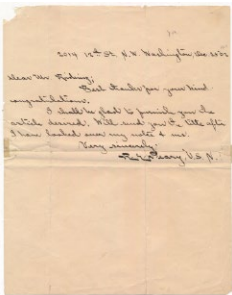 2014 12th St. N.W. Washington, Dec. 20
Dear Mr.
Best thanks for your kind
congratulations.
I shall be glad to furnish you the
article desired. Will send you the title after
I have looked over my notes & mss.
Very sincerely
R.E. Peary, U.S.N.